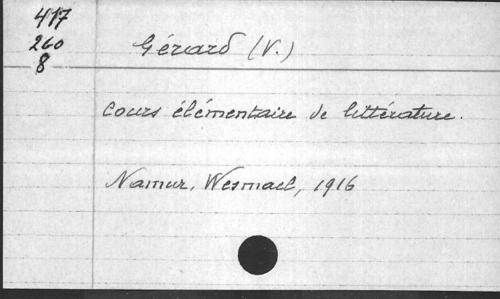 417
260
8
Gérard (V.)
Cours élémentaire de littérature.
Namur, Wesmael, 1916